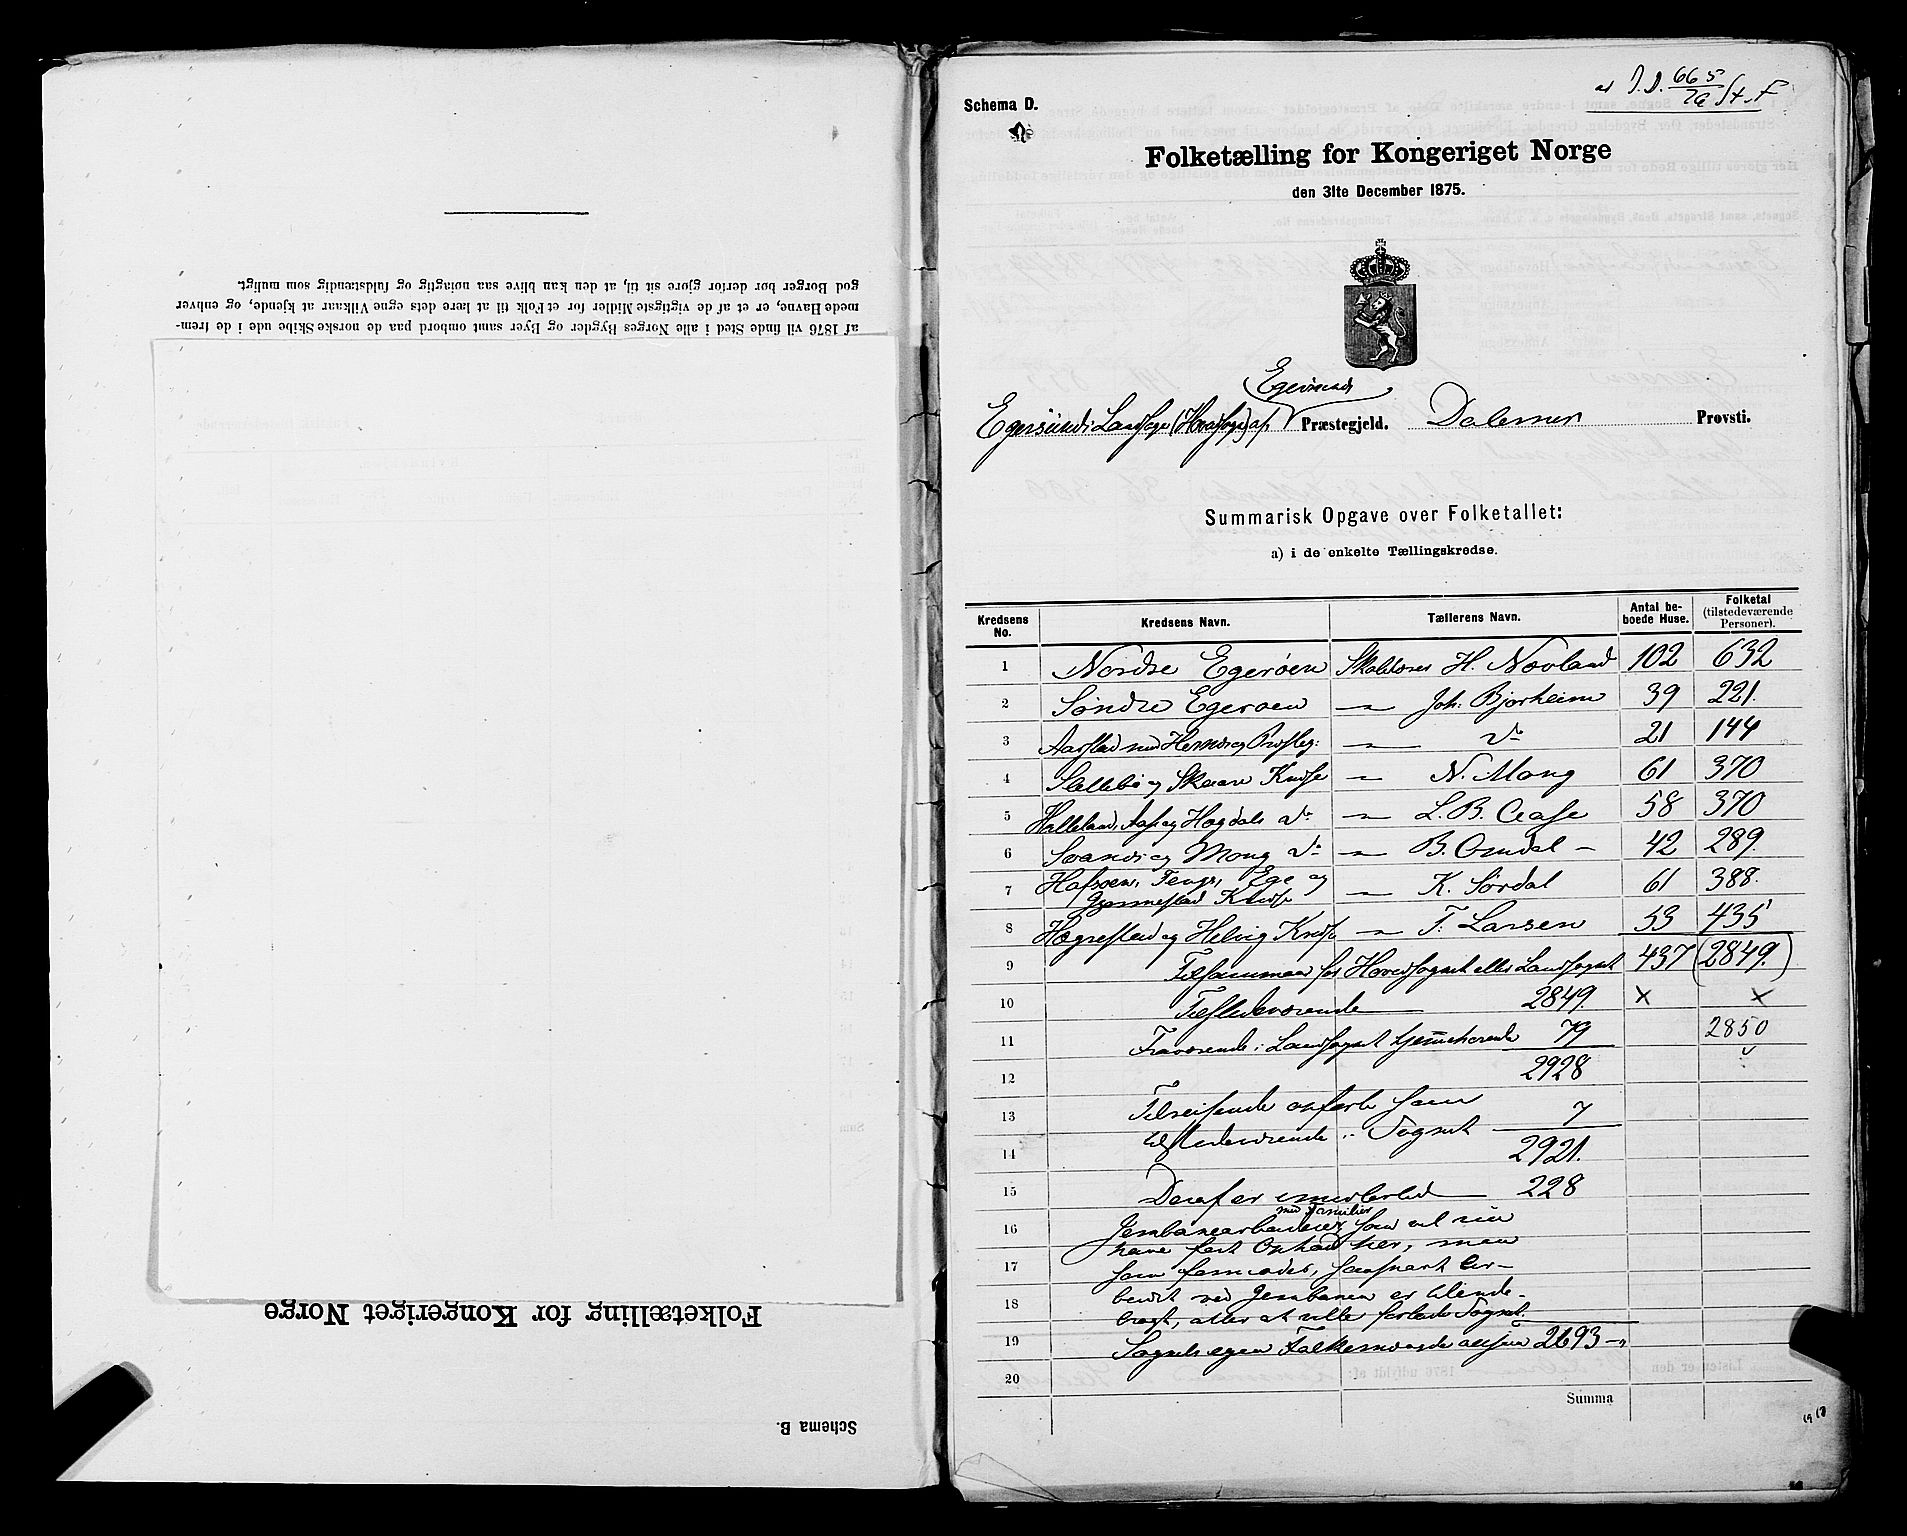 god Borger bør derfor gjøre sit til, at den kan blive saa nøiagtig og fuldstændig som muligt.
mede Havne, er et af de vigtigste Midler for et Folk til at lære dets egne Vilkaar at kjende, og enhver
af 1876 vil finde Sted i alle Norges Bygder og Byer samt ombord paa de norske Skibe ude i de frem-
Folketælling for Kongeriget Norge
Schema B.
665
Schema D.
Folketælling for Kongeriget Norge
den 31te December 1875.
Egersunds
Egersunds Landsogn (Hovedsogn) af Præstegjeld. Dalernes Provsti.
Summarisk Opgave over Folketallet:
a) i de enkelte Tællingskredse.
Kredsens No. Kredsens Navn. Tællerens Navn. Antal beboede Huse. Folketal (tilstedeværende Personer).
1 Nordre Egerøen Skolelærer H. Nevland 102 632
2 Søndre Egerøen — Joh: Bjorheim 39 221.
3 Aarstad med og — do 21 144
4 Slettebø og Skaare Kreds — N. Mong 61 370
5 Halleland, Aase og Hægdals do — L. B. Aase 58 370
6 Svanes og Mong do — B. Omdal — 42 289.
7 Hafsøen, Tengs, Ege og Gjermestad Kreds — K. Sørdal 61 388.
8 Hægrestad og Helvig Kreds — T. Larsen 53 435
9 Tilsammen for Hovedsognet eller Landsognet 437 (2849.)
10 Tilstedeværende 2849. × ×
11 Fraværende i Landsognet hjemmehørende 79 2850
12 2928
13 Tilreisende som 7
tilstedeværende i Sognet
14 2921.
15 Deraf er imidlertid 228
med Familier
16 Jernbanearbeidere som vil
have fast Ophold her, men
17 som snart Ar-
18 beidet ved Jernbanen er tilende-
bragt, atter at ville forlade Sognet.
19 Sognets egen Folkemængde altsaa 2693
20
Summa